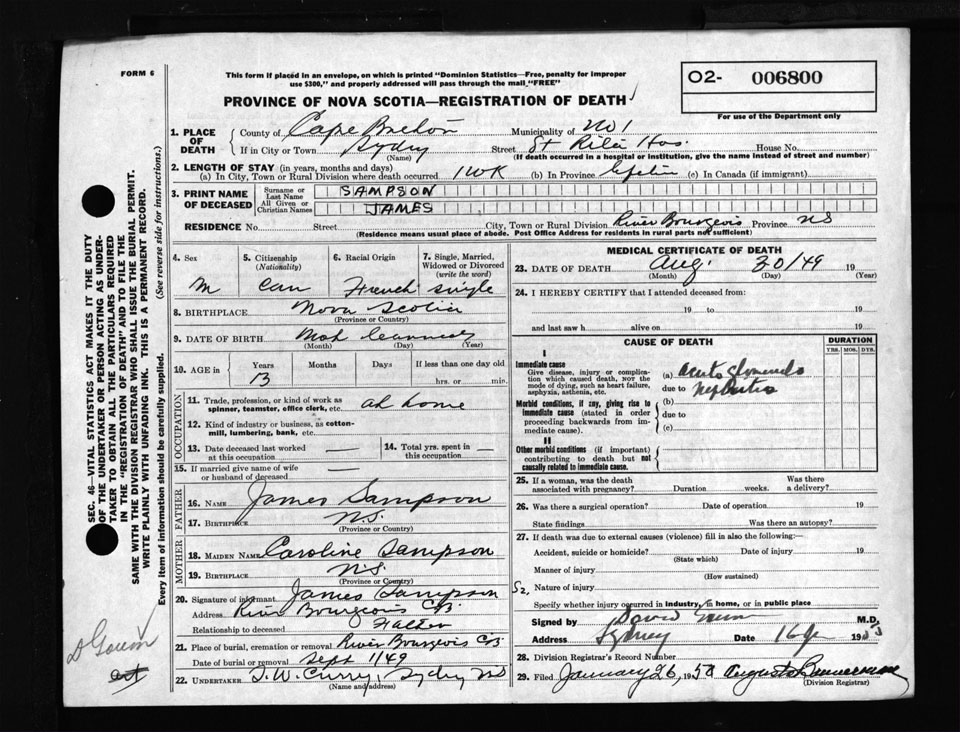 FORM 6
This form if placed in an envelope, on which is printed "Dominion Statistics—Free, penalty for improper
use $300," and properly addressed will pass through the mail "FREE"
O2- 006800
For use of the Department only
PROVINCE OF NOVA SCOTIA—REGISTRATION OF DEATH
1. PLACE OF DEATH
County of Cape Breton Municipality of No 1
If in City or Town Sydney Street St Hos. House No.
(Name) (If death occurred in a hospital or institution, give the name instead of street and number)
2. LENGTH OF STAY (in years, months and days)
(a) In City, Town or Rural Division where death occurred 1 WK (b) In Province Lifetime (c) In Canada (if immigrant)
3. PRINT NAME OF DECEASED
Surname or Last Name SAMPSON
All Given or Christian Names JAMES
RESIDENCE No. Street City, Town or Rural Division River Bourgeois Province NS
(Residence means usual place of abode. Post Office Address for residents in rural parts not sufficient)
4. Sex 5. Citizenship (Nationality) 6. Racial Origin 7. Single, Married, Widowed or Divorced (write the word)
M Can French single
8. BIRTHPLACE Nova Scotia
(Province or Country)
9. DATE OF BIRTH Not
(Month) (Day) (Year)
10. AGE in Years Months Days If less than one day old
13 hrs. or min.
OCCUPATION
11. Trade, profession, or kind of work as spinner, teamster, office clerk, etc. at home
12. Kind of industry or business, as cotton-mill, lumbering, bank, etc.
13. Date deceased last worked at this occupation —
14. Total yrs. spent in this occupation —
15. If married give name of wife or husband of deceased —
FATHER
16. NAME James Sampson
17. BIRTHPLACE N.S.
(Province or Country)
MOTHER
18. MAIDEN NAME Caroline Sampson
19. BIRTHPLACE N.S.
(Province or Country)
20. Signature of informant James Sampson
Address River Bourgeois CB
Relationship to deceased Father
21. Place of burial, cremation or removal River Bourgeois CB
Date of burial or removal Sept 1/49
22. UNDERTAKER T.W. Curry, Sydney NS
(Name and address)
MEDICAL CERTIFICATE OF DEATH
23. DATE OF DEATH Aug. 30/49 19
(Month) (Day) (Year)
24. I HEREBY CERTIFY that I attended deceased from:
19 to 19
and last saw h alive on 19
CAUSE OF DEATH
DURATION
YRS. MOS. DYS.
I
Immediate cause
Give disease, injury or complication which caused death, NOT the mode of dying, such as heart failure, asphyxia, asthenia, etc.
(a) Acute
due to Nephritis
Morbid conditions, if any, giving rise to immediate cause (stated in order proceeding backwards from immediate cause).
(b)
due to
(c)
II
Other morbid conditions (if important) contributing to death but not causally related to immediate cause.
25. If a woman, was the death associated with pregnancy? Duration weeks. Was there a delivery?
26. Was there a surgical operation? Date of operation 19
State findings Was there an autopsy?
27. If death was due to external causes (violence) fill in also the following:—
Accident, suicide or homicide? Date of injury 19
(State which)
Manner of injury
(How sustained)
Nature of injury
Specify whether injury occurred in industry, in home, or in public place
Signed by David M.D.
Address Sydney Date 16
28. Division Registrar's Record Number
29. Filed January 26, 1950
(Division Registrar)
SEC. 46—VITAL STATISTICS ACT MAKES IT THE DUTY
OF THE UNDERTAKER OR PERSON ACTING AS UNDER-
TAKER TO OBTAIN ALL THE PARTICULARS REQUIRED
IN THE "REGISTRATION OF DEATH" AND TO FILE THE
SAME WITH THE DIVISION REGISTRAR WHO SHALL ISSUE THE BURIAL PERMIT.
WRITE PLAINLY WITH UNFADING INK. THIS IS A PERMANENT RECORD.
Every item of information should be carefully supplied. (See reverse side for instructions.)